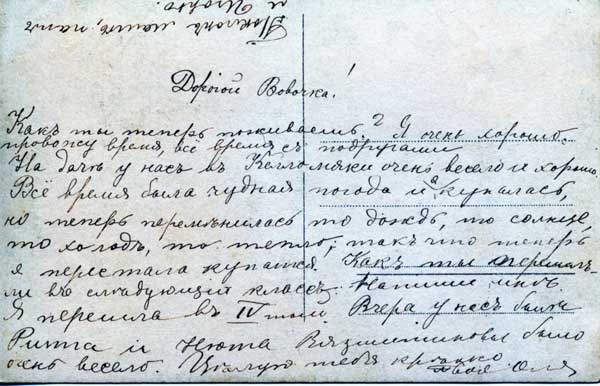 Поклонъ мамѣ, папѣ
и
Дорогой Вовочка!
Какъ ты теперь поживаешь? Я очень хорошо
провожу время, всё время съ подругами
На дачѣ у насъ въ Келломяки очень весело и хорошо.
Всё время была чудная погода и я купалась,
но теперь перемѣнилась то дождь, то солнце,
то холодъ, то тепло, такъ что теперь
я перестала купаться. Какъ ты
ли въ слѣдующій классъ? Напиши мнѣ.
Я перешла въ IV Вчера у насъ были
Римма и Нюта было
очень весело. Цѣлую тебя крѣпко
твоя Оля